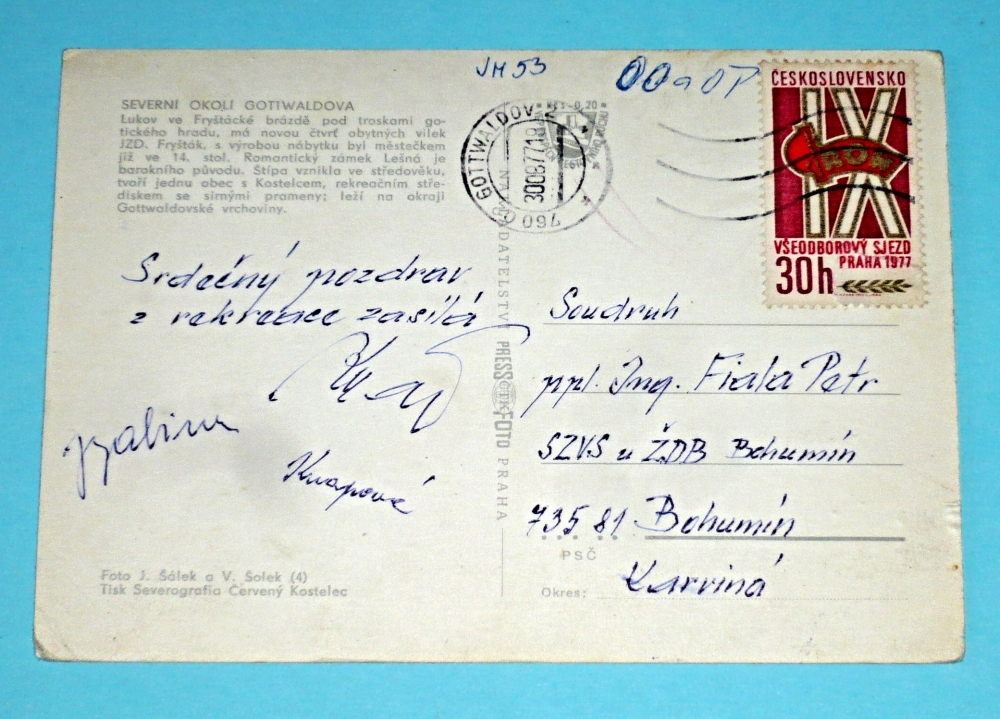 JH 53
SEVERNÍ OKOLÍ GOTTWALDOVA
Lukov ve Fryštácké brázdě pod troskami go-
tického hradu, má novou čtvrť obytných vilek
JZD. Fryšták, s výrobou nábytku byl městečkem
již ve 14. stol. Romantický zámek Lešná je
barokního původu. Štípa vznikla ve středověku,
tvoří jednu obec s Kostelcem, rekreačním stře-
diskem se sirnými prameny; leží na okraji
Gottwaldovské vrchoviny.
Kčs -0,20
GOTTWALDOV 2
30 08 77 18
09d
ČESKOSLOVENSKO
IX
ROH
VŠEODBOROVÝ SJEZD
PRAHA 1977
30h
Srdečný pozdrav
z rekreace zasílá
Knapová
VYDAVATELSTVÍ PRESSFOTO PRAHA
ČTK
Soudruh
ppl. Ing. Fiala Petr
SZVS u ŽDB Bohumín
735 81 Bohumín
PSČ
Karviná
Okres:
Foto J. Šálek a V. Šolek (4)
Tisk Severografia Červený Kostelec